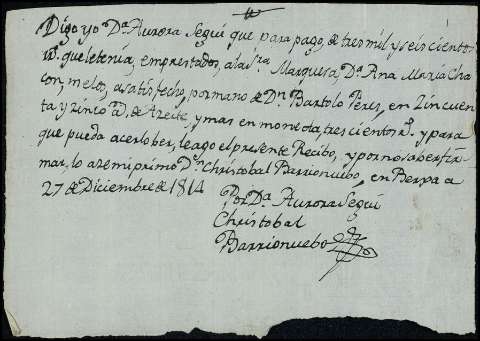 Digo yo Dª Aurora Segui que para pago, de tres mil y seis cientos
rs. que le tenia, emprestados, a la sra. Marquesa, Dª Ana Maria Cha
con, me los, a satisfecho, por mano de Dn. Bartolo Peres, en Zincuen
ta y zinco @. de Azeite, y mas en moneda tres cientos rs. y para
que pueda acerlo ber, le ago el presente Recibo, y por no saber fir
mar, lo aze mi primo Dn. Christobal Barrionuebo, en Berxa a
27 de Diciembre de 1814
Por Dª Aurora Segui
Christobal
Barrionuebo